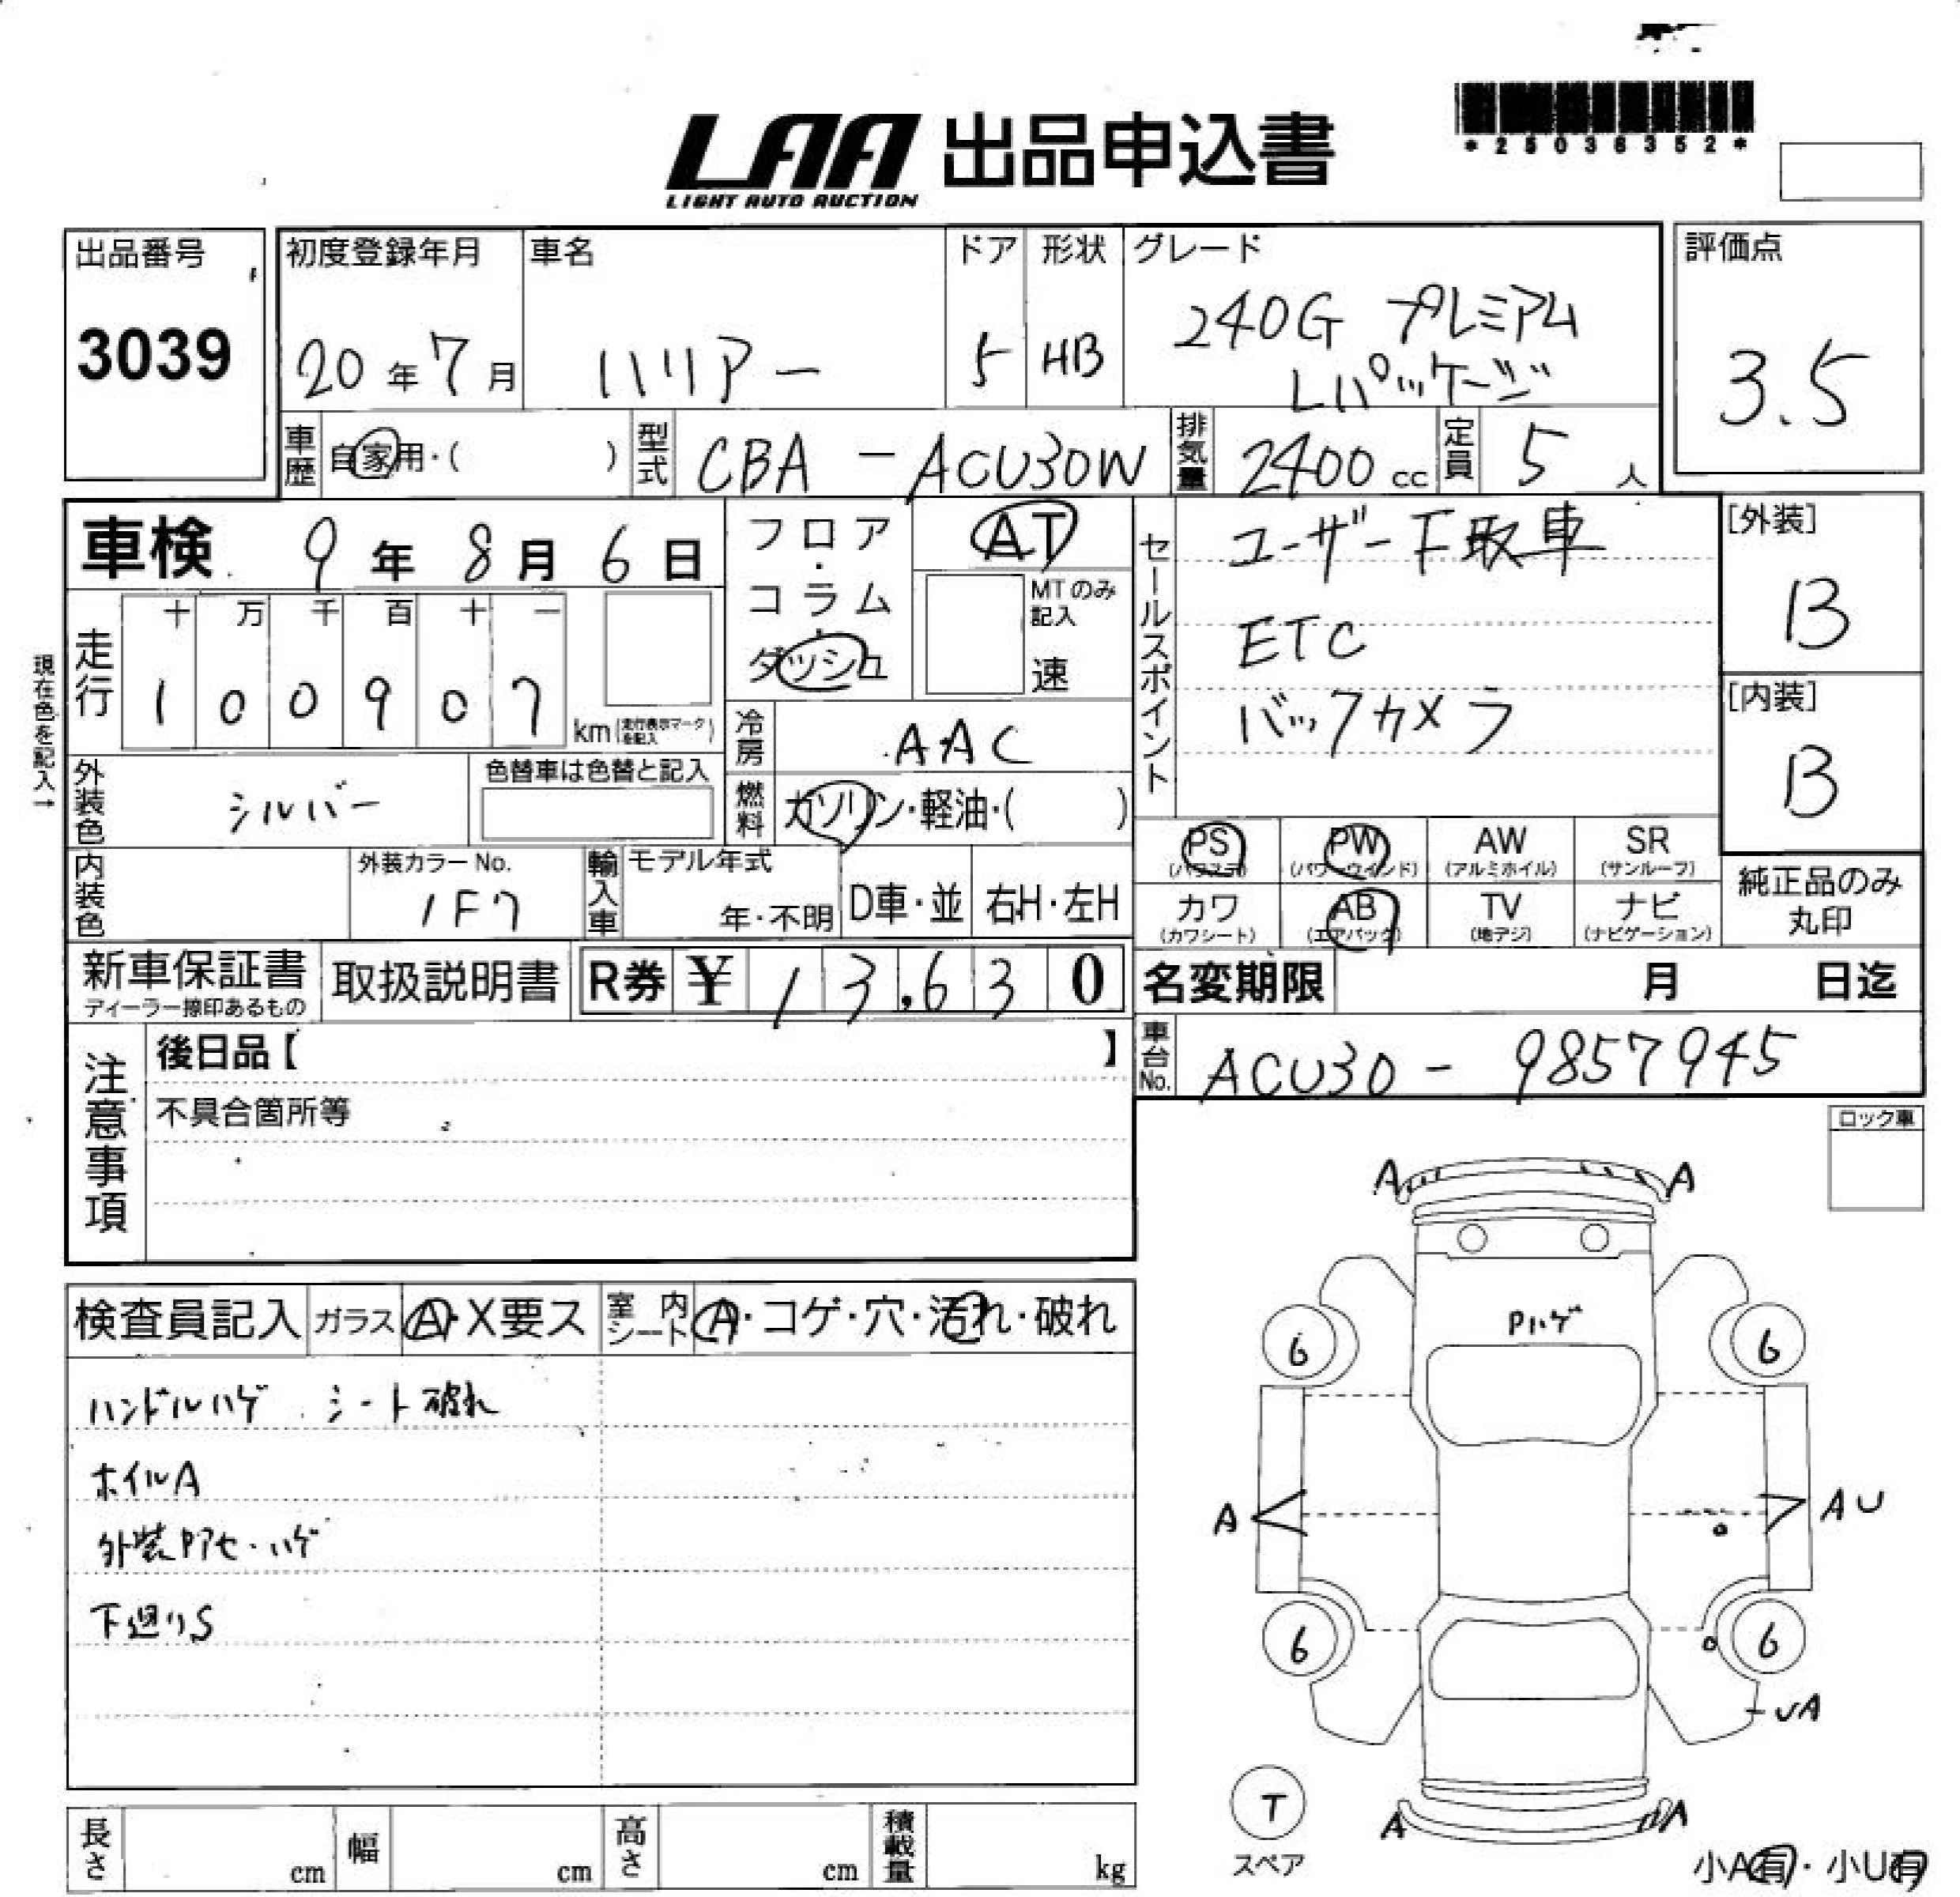 LAA 出品申込書
LIGHT AUTO AUCTION
*25036352*
出品番号
3039
初度登録年月
20年7月
車名
ハリアー
ドア
5
形状
HB
グレード
240G プレミアム
Lパッケージ
評価点
3.5
車歴
自家用・( )
型式
CBA-ACU30W
排気量
2400cc
定員
5人
車検 9年8月6日
フロア・
コラム・
ダッシュ
AT
MTのみ
記入
速
セールスポイント
ユーザー下取車
ETC
バックカメラ
[外装]
B
[内装]
B
現在色を記入→
走行
十 万 千 百 十 一
1 0 0 9 0 7
km(走行表示マークを記入)
冷房
AAC
外装色
シルバー
色替車は色替と記入
燃料
ガソリン・軽油・( )
PS
(パワステ)
PW
(パワーウインド)
AW
(アルミホイル)
SR
(サンルーフ)
内装色
外装カラーNo.
1F7
輸入車
モデル年式
年・不明
D車・並
右H・左H
カワ
(カワシート)
AB
(エアバック)
TV
(地デジ)
ナビ
(ナビゲーション)
純正品のみ
丸印
新車保証書
ディーラー捺印あるもの
取扱説明書
R券 ¥ 13,630
名変期限 月 日迄
注意事項
後日品【 】
不具合箇所等
車台No.
ACU30-9857945
ロック車
検査員記入
ガラス
A・X要ス
室内
シート
A・コゲ・穴・汚れ・破れ
ハンドルハゲ シート破れ
ホイルA
外装Pアセ・ハゲ
下廻りS
A A
Pハゲ
6 6
A AU
6 6
UA
T
スペア
A A
小A有・小U有
長さ cm
幅 cm
高さ cm
積載量 kg